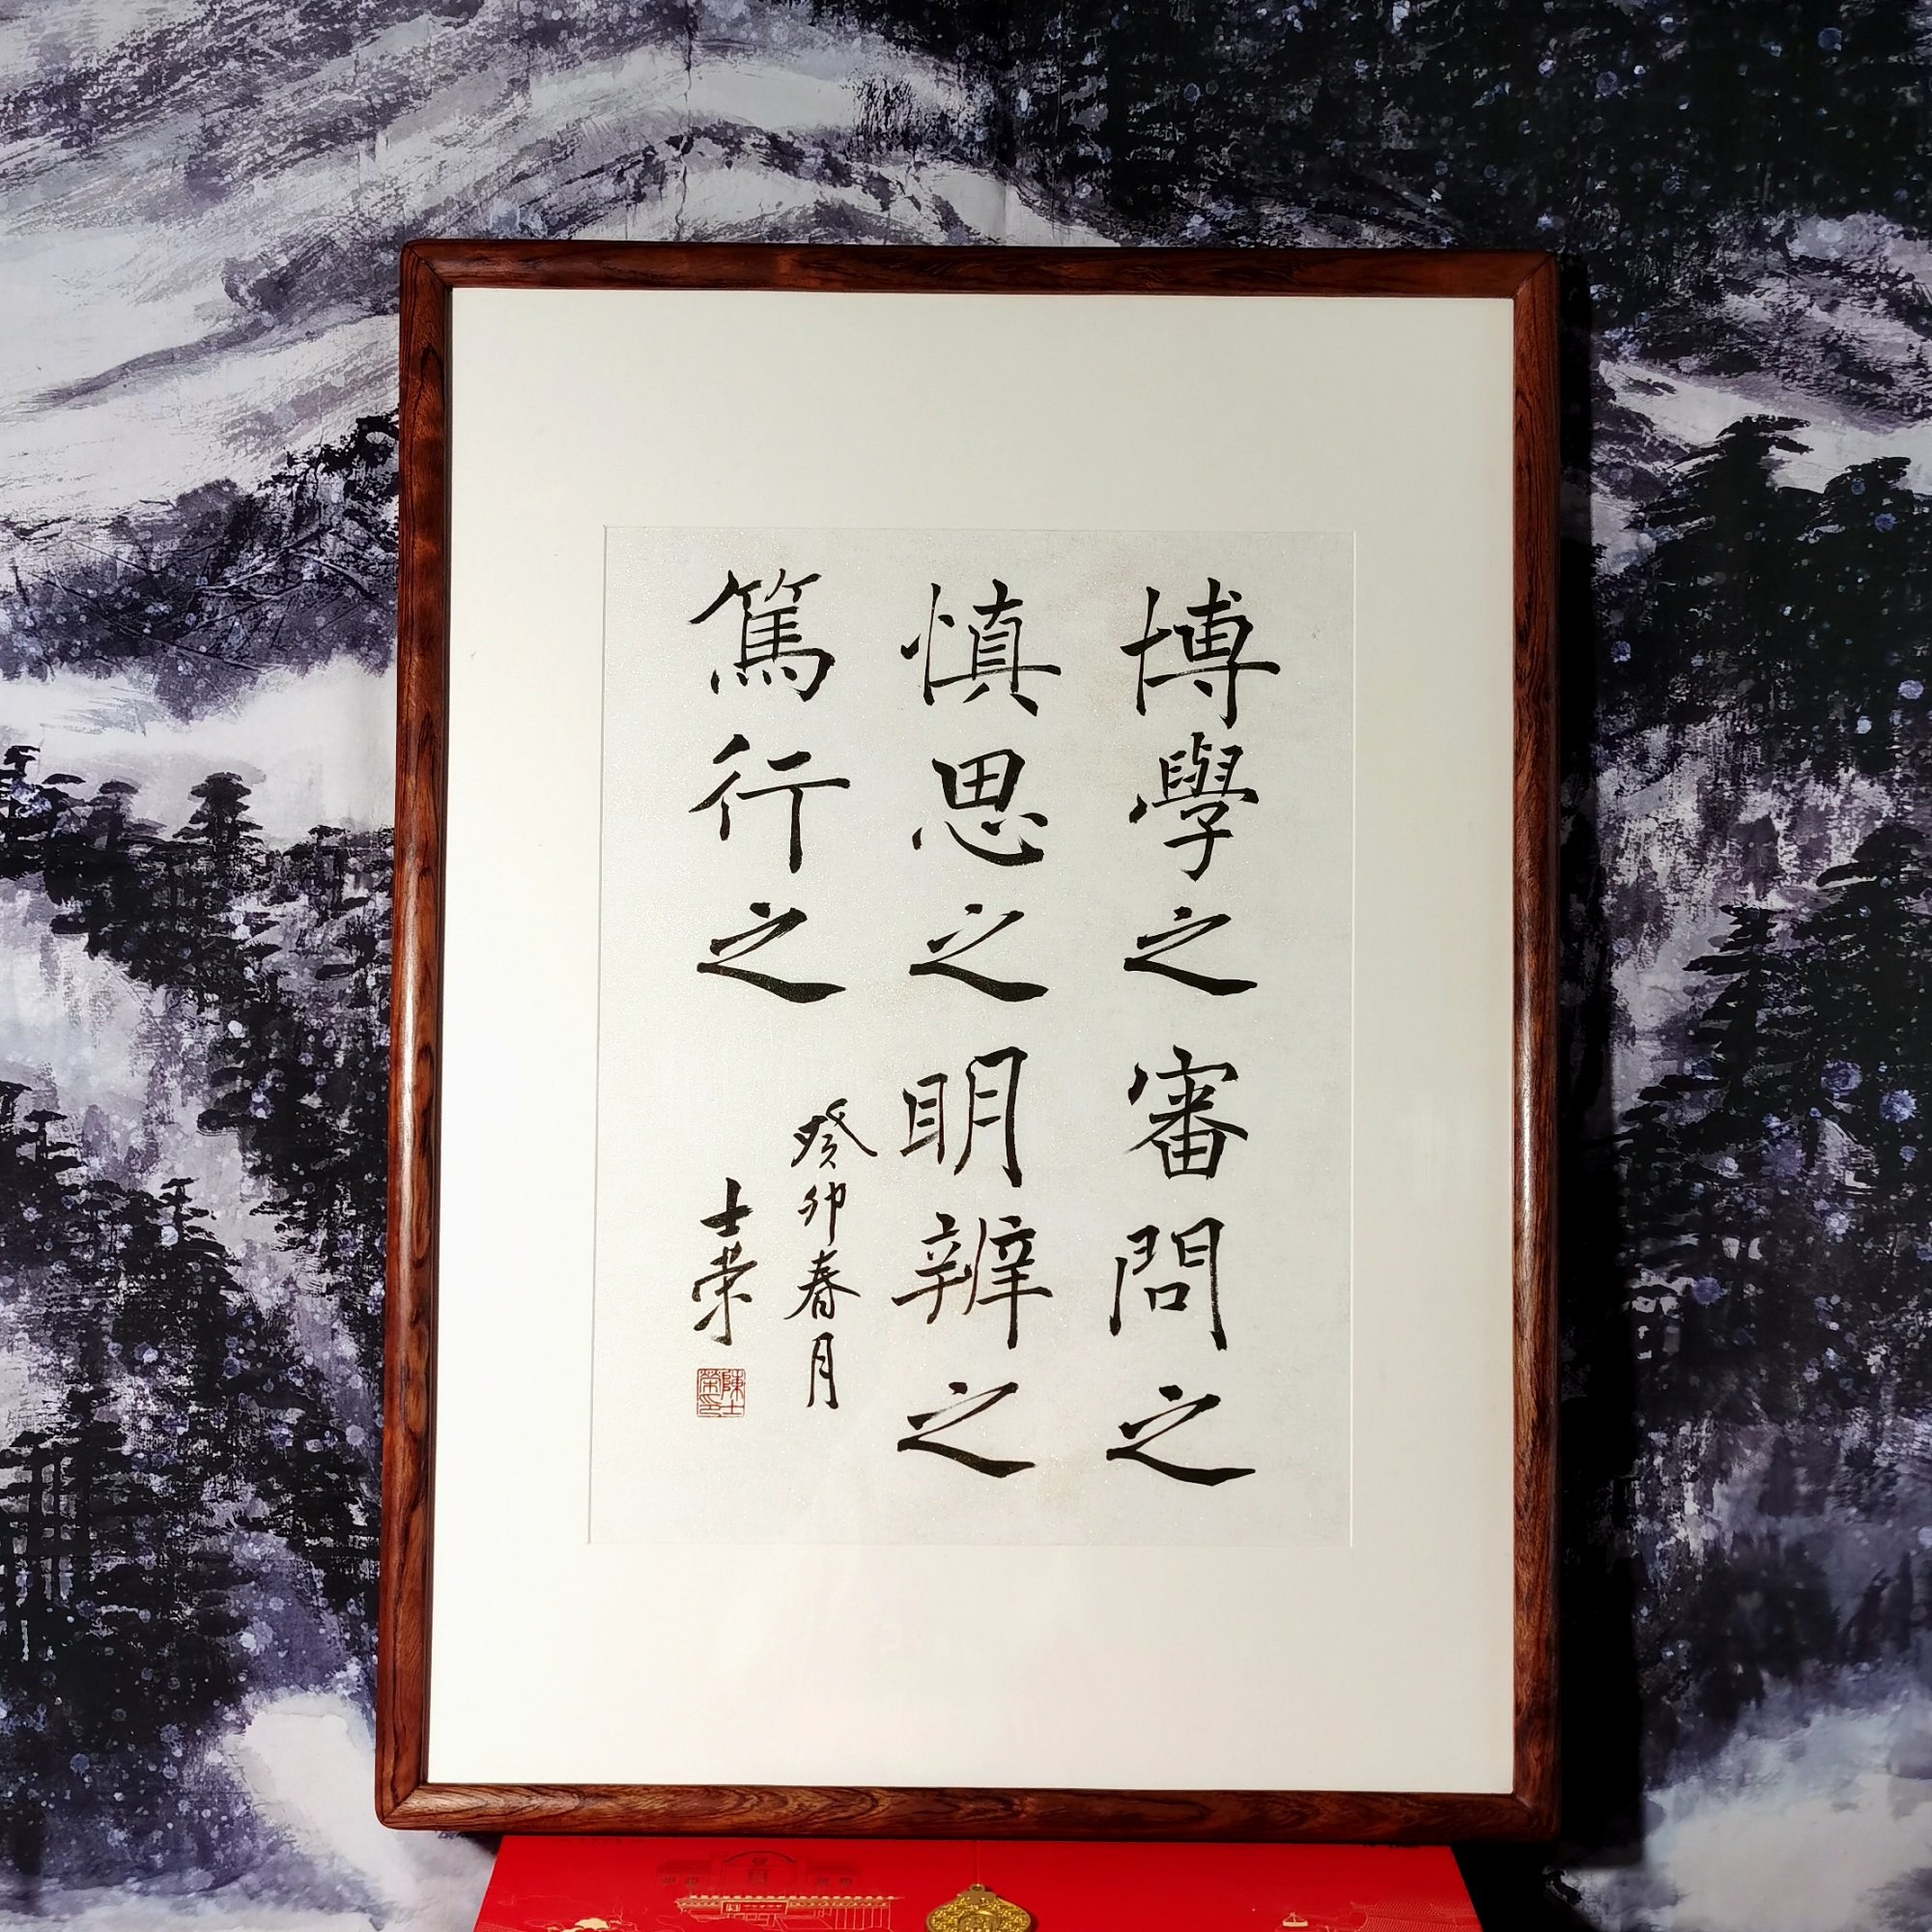 博學之審問之
慎思之明辨之
篤行之
癸卯春月
士荣
陳士榮印